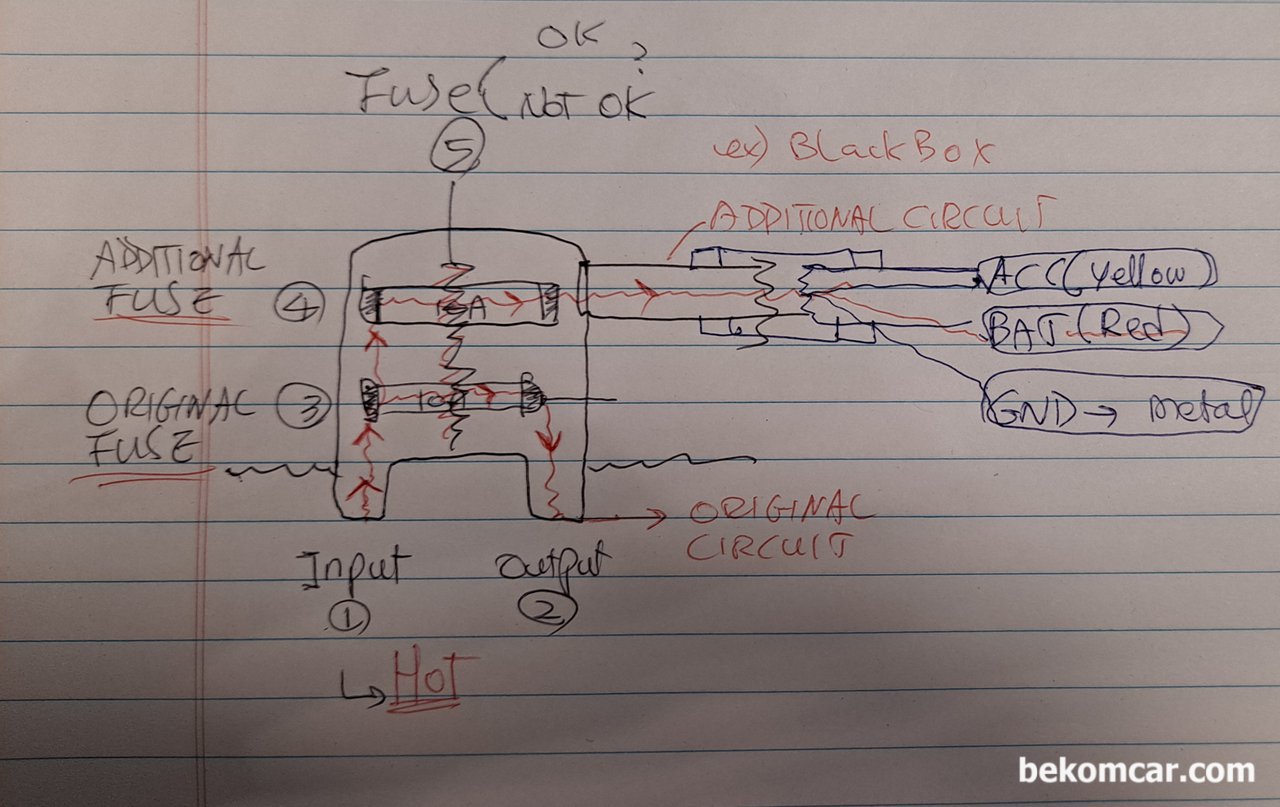 OK ?
Fuse( NOT OK
5
ex) BLackBox
ADDITIONAL CIRCUIT
ADDITIONAL
FUSE 4
ACC(Yellow)
BAT(Red)
ORIGINAL 3
FUSE
GND → metal
ORIGINAL
CIRCUIT
Input
1
Output
2
↳ HOT
bekomcar.com